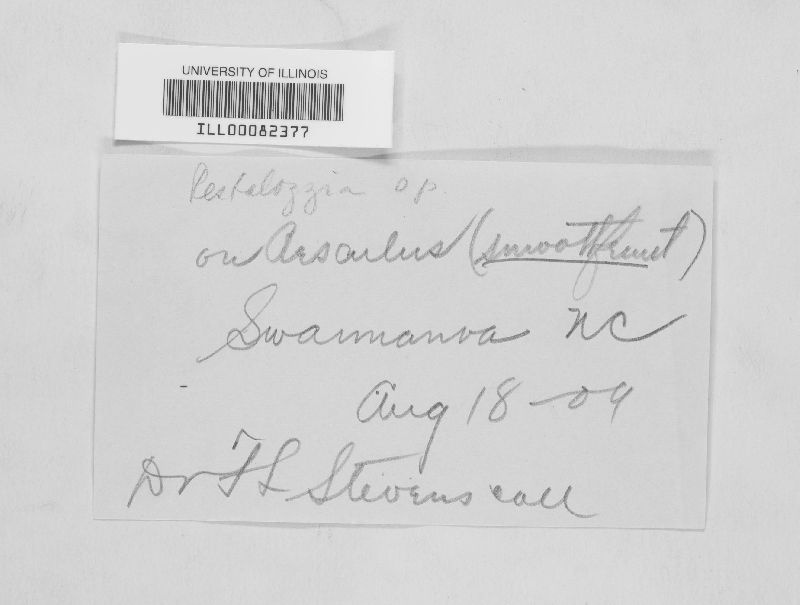 UNIVERSITY OF ILLINOIS
ILL00082377
Pestalozzia sp.
on Aesculus (smooth fruit)
Swannanoa NC
Aug 18-09
Dr FL Stevens coll